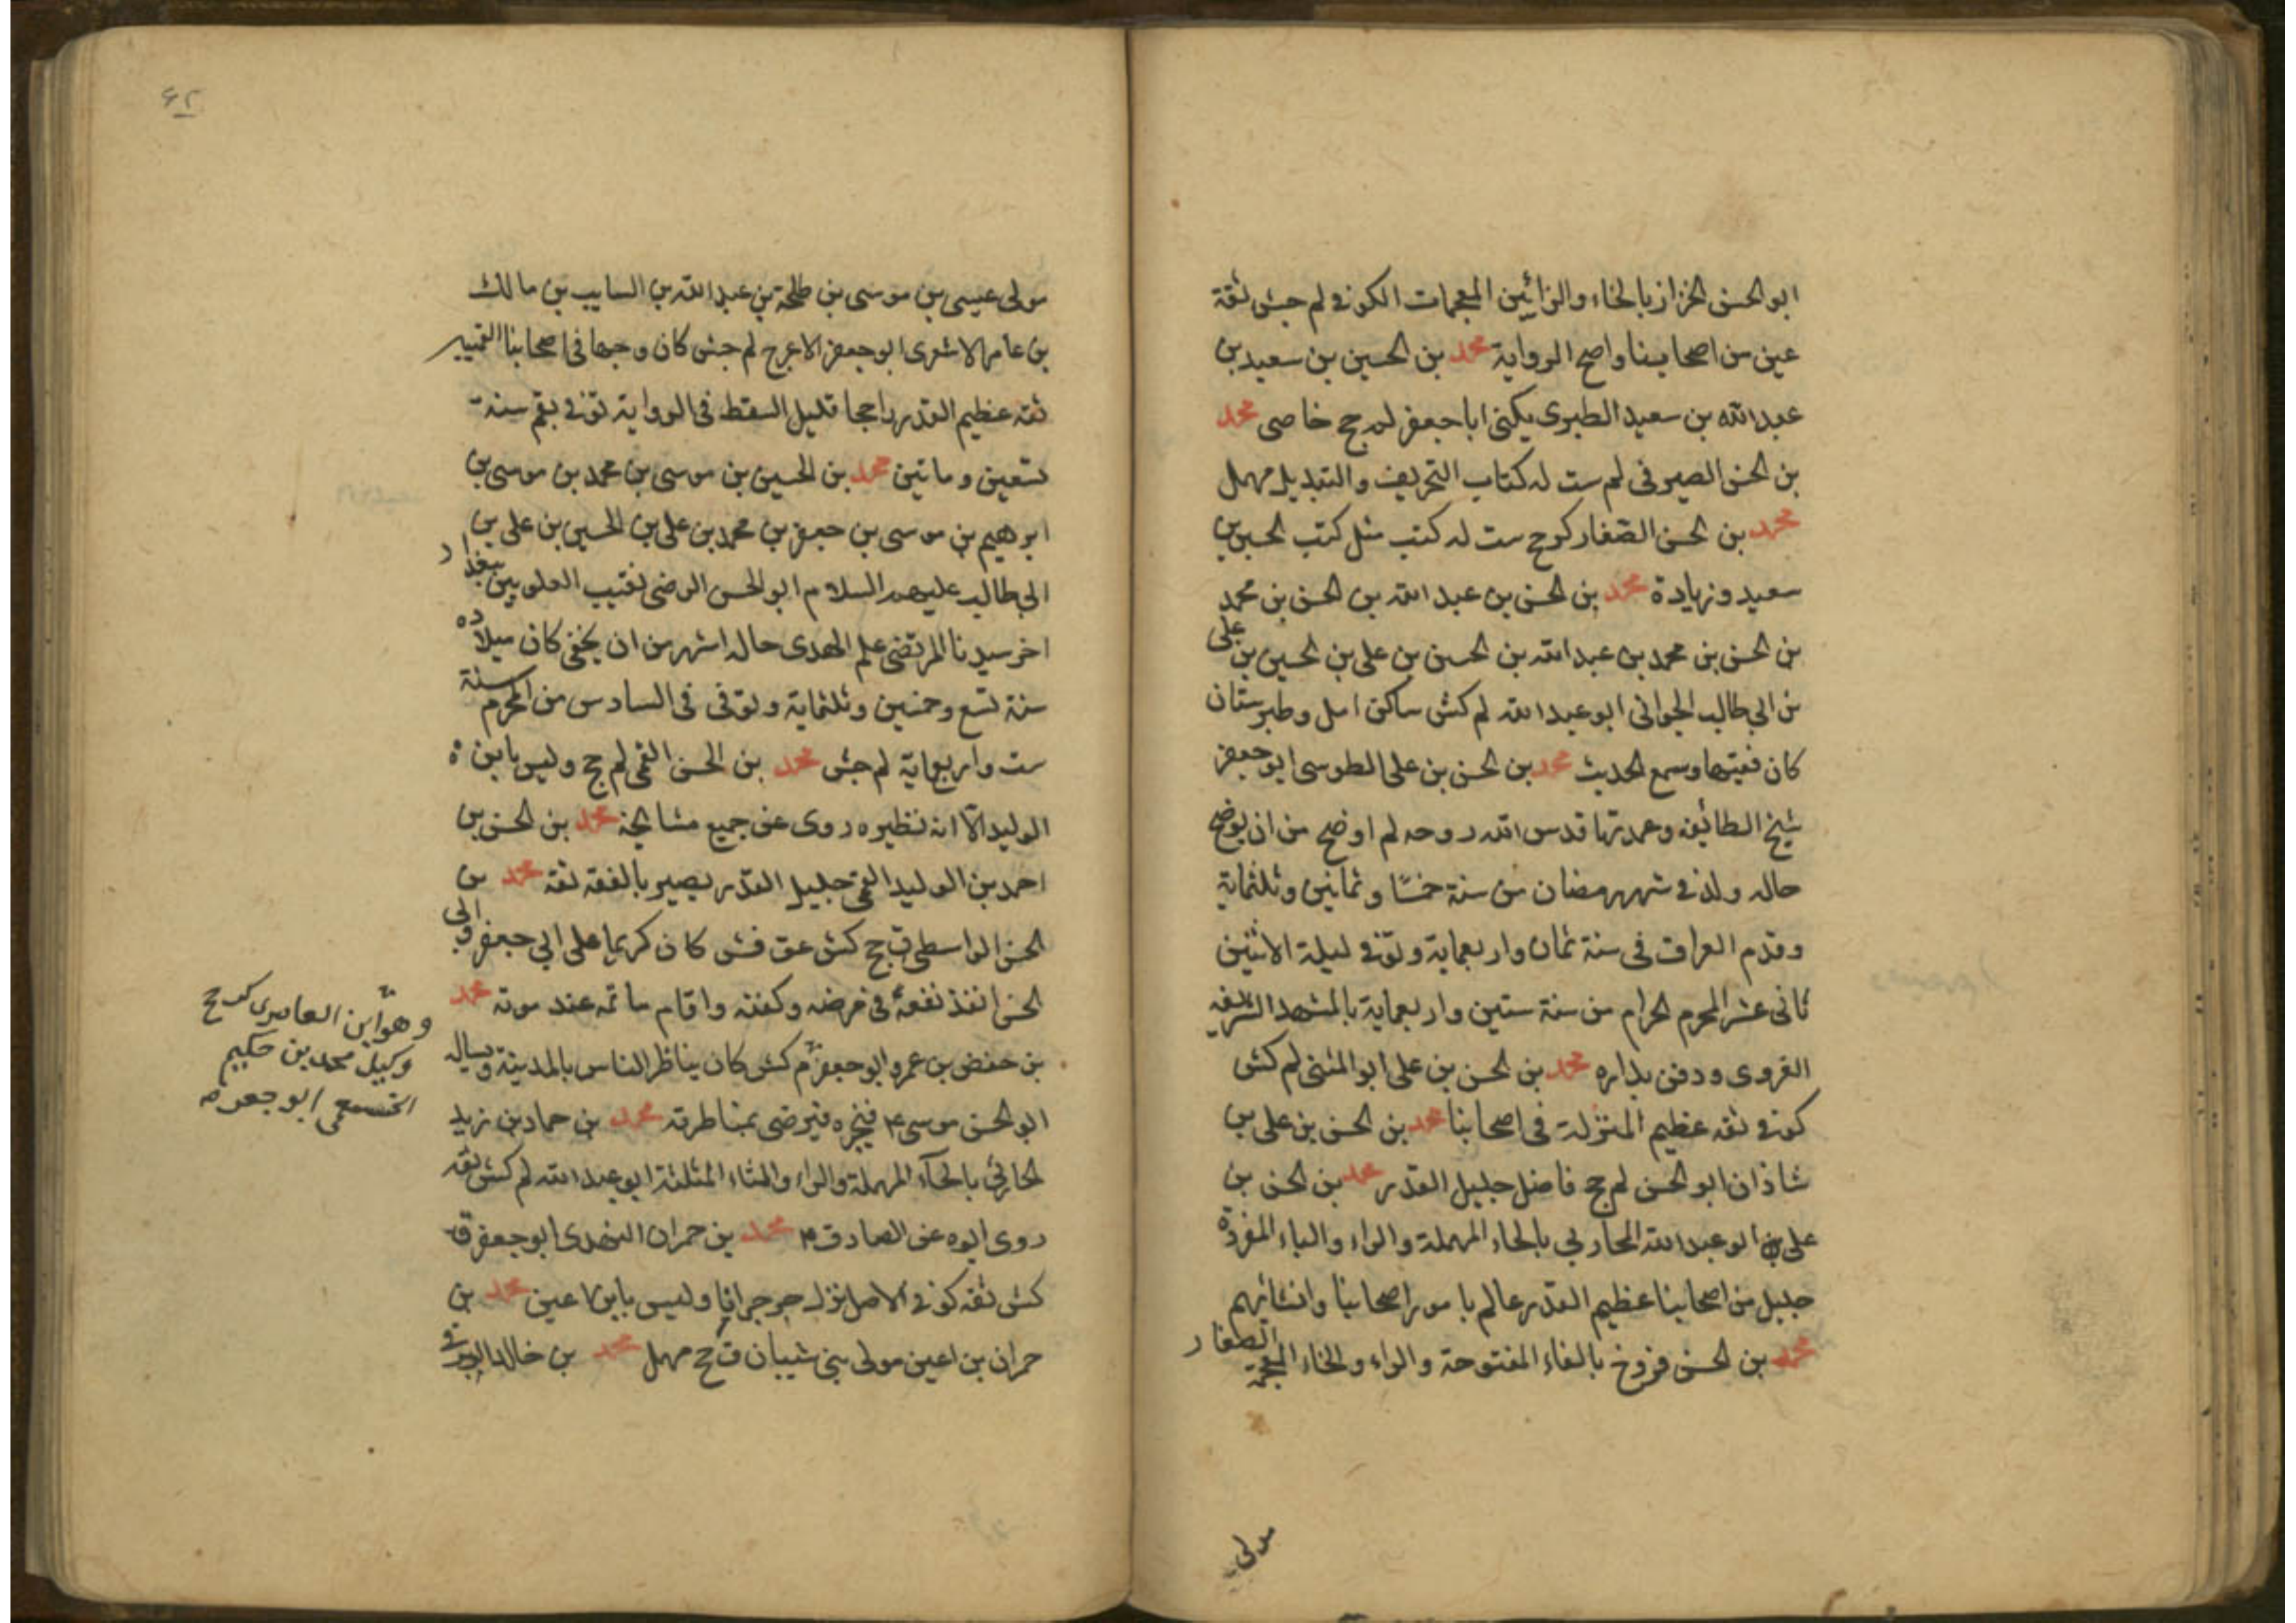 ابو الحسن الخزاز بالخاء والزائين المعجمات الكوفي لم جش ثقة
عين من اصحابنا واضح الرواية محمد بن الحسين بن سعيد بن
عبدالله بن سعيد الطبري يكنى ابا جعفر لم جخ خاصى محمد
بن الحسن الصيرفى لم ست له كتاب التحريف والتبديل مهمل
محمد بن الحسن الصفار كر جخ ست له كتب مثل كتب الحسين بن
سعيد وزيادة محمد بن الحسن بن عبد الله بن الحسن بن محمد
بن الحسن بن محمد بن عبد الله بن الحسين بن علي بن الحسين بن علي
بن ابي طالب الجواني ابو عبد الله لم كش ساكن امل وطبرستان
كان فقيها وسمع الحديث محمد بن الحسن بن على الطوسى ابو جعفر
شيخ الطائفه وعمدتها قدس الله روحه لم اوضح من ان يوضح
حاله ولد في شهر رمضان من سنة خمسًا وثمانين وثلثماية
وقدم العراق فى سنة ثمان واربعماية وتوفي ليلة الاثنين
ثانى عشر المحرم الحرام من سنة ستين واربعماية بالمشهد الشريف
الغروى ودفن بداره محمد بن الحسن بن على ابو المثنى لم كش
كوفي ثقه عظيم المنزلة فى اصحابنا محمد بن الحسن بن على بن
شاذان ابو الحسن لم جخ فاضل جليل القدر محمد بن الحسن بن
على ابو عبد الله المحاربي بالحاء المهملة والراء والباء المفردة
جليل من اصحابنا عظيم القدر عالم بامور اصحابنا وانسابهم
محمد بن الحسن فروخ بالفاء المفتوحة والراء والخاء المعجمة الصفار
مولى
٤٢
مولى عيسى بن موسى بن طلحة بن عبد الله بن السايب بن مالك
بن عامر الاشعرى ابو جعفر الاعرج لم جش كان وجها فى اصحابنا القميين
ثقه عظيم القدر راجحا قليل السقط فى الرواية توفي بقم سنة
تسعين وماتين محمد بن الحسين بن موسى بن محمد بن موسى بن
ابرهيم بن موسى بن جعفر بن محمد بن على بن الحسين بن على بن
ابى طالب عليهم السلام ابو الحسن الرضى نقيب العلويين ببغداد
اخو سيدنا المرتضى علم الهدى حاله اشهر من ان يخفى كان ميلاده
سنة تسع وخمسين وثلثماية وتوفى فى السادس من المحرم سنة
ست واربعماية لم جش محمد بن الحسن القمى لم جخ وليس بابن
الوليد الا انه نظيره روى عن جميع مشايخه محمد بن الحسن بن
احمد بن الوليد القمى جليل القدر بصير بالفقه ثقه محمد بن
الحسن الواسطى جخ كش كان كريما على ابي جعفر
الحسن انفذ نفقة في مرضه وكفنه واقام ماتمه عند موته محمد
بن حفص بن عمرو ابو جعفر م كش كان يناظر الناس بالمدينة وساله
ابو الحسن موسى ع فيخبره فيرضى بمناظرته محمد بن حماد بن زيد
الحارثي بالحاء المهملة والراء والثاء المثلثة ابو عبد الله لم كش ثقه
روى ابوه عن الصادق م محمد بن حمران النهدى ابو جعفر ق
كش ثقه كوفي الاصل نزل جرجرايا وليس بابن اعين محمد بن
حمران بن اعين مولى بنى شيبان ق جخ مهمل محمد بن خالد البرقي
وهو ابن العامرى كر جخ
وكيل محمد بن حكيم
الخثعمى ابو جعفر م